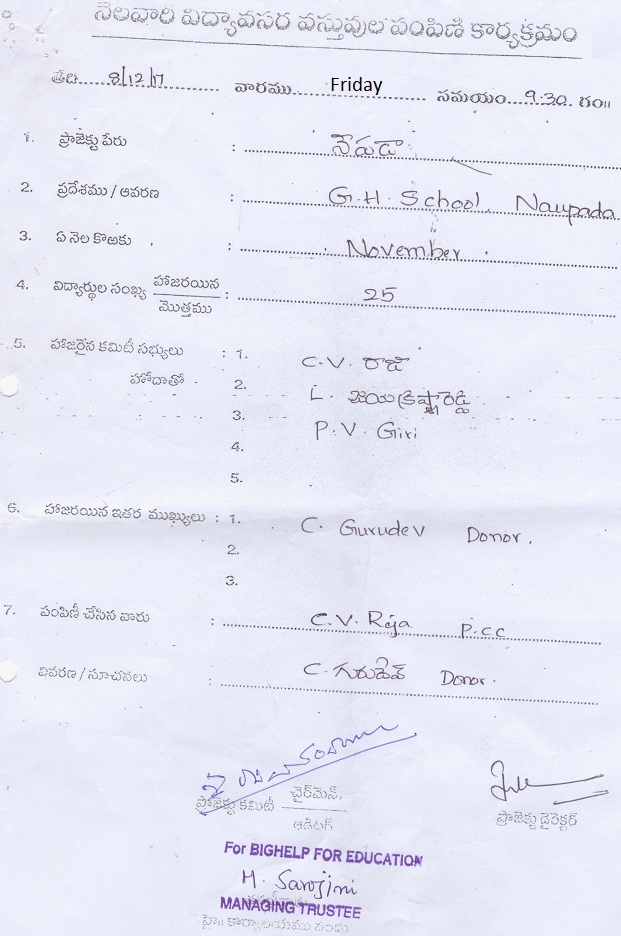 నెలవారి విద్యావసర వస్తువుల పంపిణి కార్యక్రమం
తేది 8/12/17 వారము Friday సమయం 9.30 గం॥
1. ప్రాజెక్టు పేరు : నౌపడా
2. ప్రదేశము / ఆవరణ : G.H. School, Naupada
3. ఏ నెల కొఱకు : November
4. విద్యార్థుల సంఖ్య హాజరయిన / మొత్తము : 25
5. హాజరైన కమిటీ సభ్యులు : 1. C.V. రాజా
హోదాతో 2. L. జయక్రిష్ణారెడ్డి
3. P.V. Giri
4.
5.
6. హాజరయిన ఇతర ముఖ్యులు : 1. C. Gurudev Donor.
2.
3.
7. పంపిణీ చేసిన వారు : C.V. Raja P.CC
వివరణ / సూచనలు : C. గురుదేవ్ Donor.
ప్రాజెక్టు కమిటీ ఛైర్‌మెన్, / ఆడిటర్
ప్రాజెక్టు డైరెక్టర్
For BIGHELP FOR EDUCATION
M. Sarojini
MANAGING TRUSTEE
హై॥ కార్యాలయము నందు